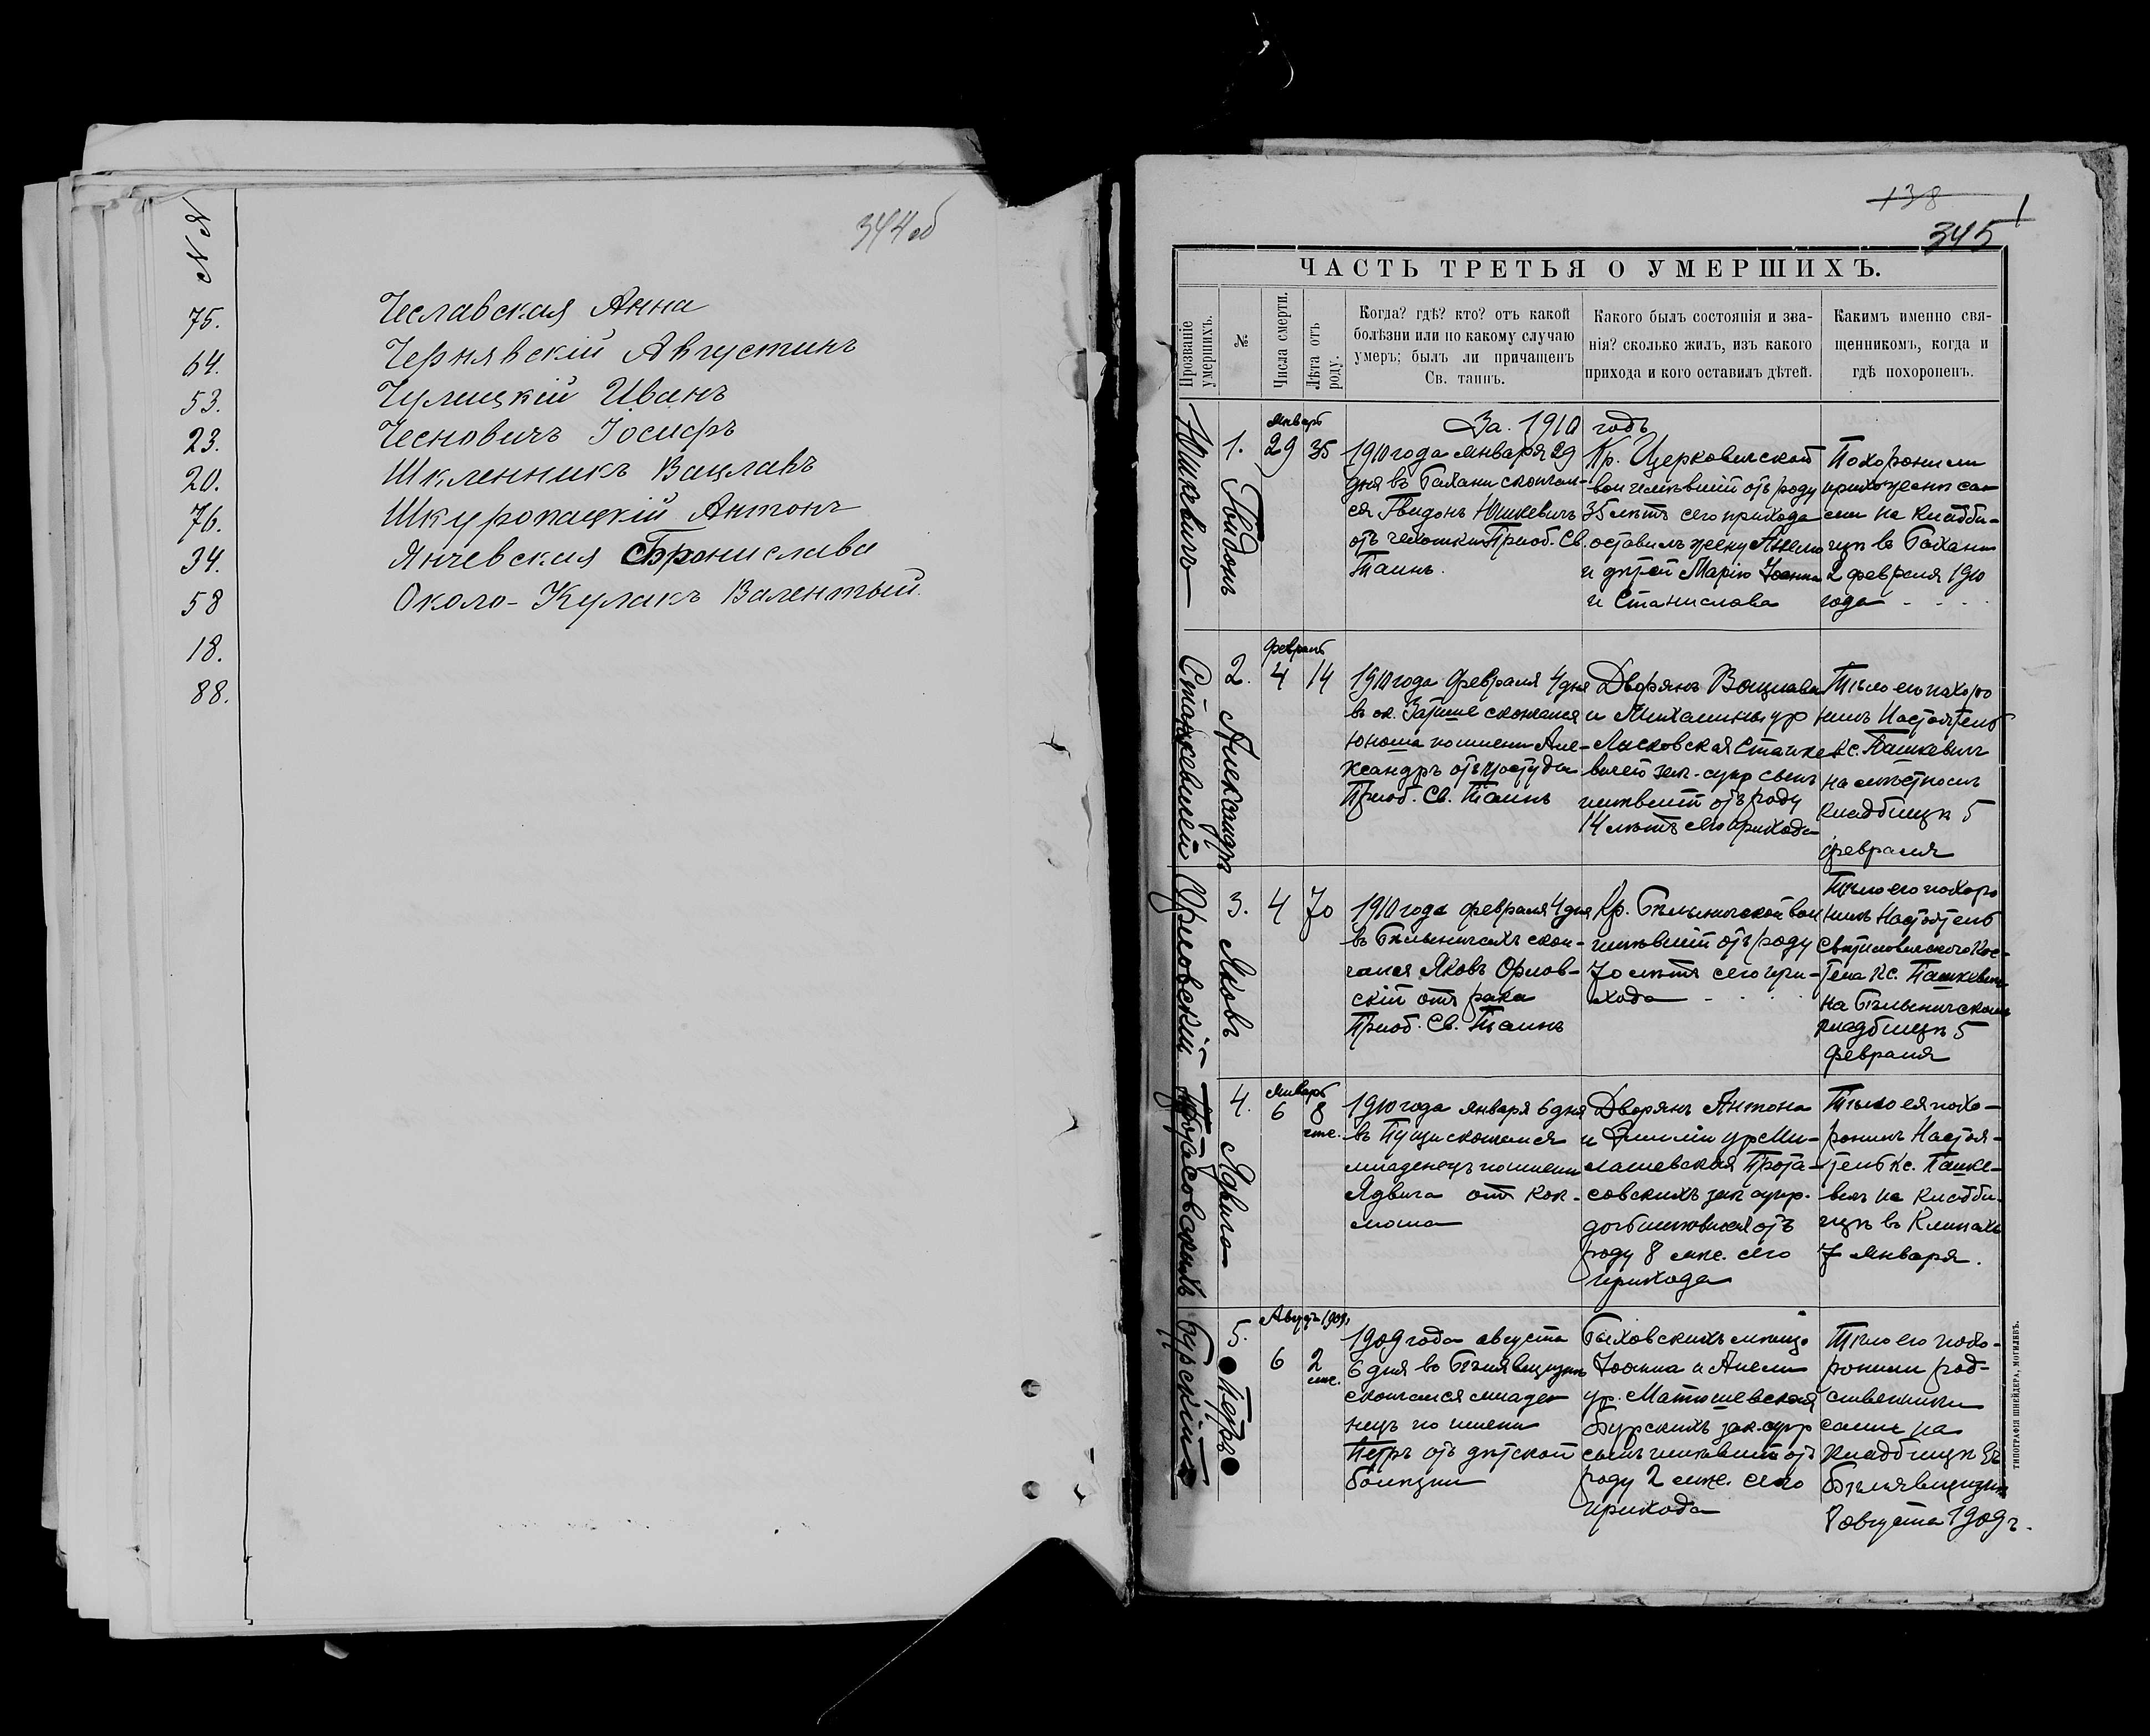 344 об
№ №
75. Чеславская Анна
64. Чернявскій Августинъ
53. Чулицкій Иванъ
23. Чесновичъ Іосифъ
20. Шкленникъ Вацлавъ
76. Шкуропацкій Антонъ
34. Янчевская Бронислава
58 Около-Кулакъ Валентый.
18.
88.
138
345
ЧАСТЬ ТРЕТЬЯ О УМЕРШИХЪ.
Прозваніе умершихъ.
№
Числа смерти.
Лѣта отъ роду.
Когда? гдѣ? кто? отъ какой
болѣзни или по какому случаю
умеръ; былъ ли причащенъ
Св. таинъ.
Какого былъ состоянія и зва-
нія? сколько жилъ, изъ какого
прихода и кого оставилъ дѣтей.
Какимъ именно свя-
щенникомъ, когда и
гдѣ похороненъ.
За 1910 годъ
Юшкевичъ
1.
Гвидонъ
Январь
29
35
1910 года января 29
дня въ Бахани скончал-
ся Гвидонъ Юшкевичъ
отъ чахотки Приоб. Св.
Таинъ.
Кр. Церковической
вол имѣвшій отъ роду
35 лѣтъ сего прихода
оставилъ жену
и дѣтей Марію Іоанна
и Станислава
Похоронили
прихожане са-
ми на кладби-
щѣ въ Бахани
2 февраля 1910
года
Станкевичей
2.
Александръ
Февраль
4
14
1910 года февраля 4 дня
въ ок. Затише скончался
юноша по имени Але-
ксандръ отъ простуды
Приоб. Св. Таинъ
Дворянъ Вацлава
и Михалины ур
Лисковская Станке
вичей зак. супр сынъ
имѣвшій отъ роду
14 лѣтъ сего прихода
Тѣло его похоро
нилъ Настоятель
Кс. Пашкевичъ
на мѣстномъ
кладбищѣ 5
февраля
Орловскій
3.
Яковъ
4
70
1910 года февраля 4 дня
въ Бѣлыничахъ скон-
чался Яковъ Орлов-
скій отъ рака
Приоб. Св. Таинъ
Кр. Бѣлыничской вол
имѣвшій отъ роду
70 лѣтъ сего при-
хода
Тѣло его похоро
нилъ Настоятель
Святиловичского Кос-
тела Кс. Пашкевичъ
на Бѣлыничскомъ
кладбищѣ 5
февраля
Протасовскихъ
4.
Ядвига
Январь
6
8
мѣс.
1910 года января 6 дня
въ Пущи скончался
младенецъ по имени
Ядвига отъ кок-
люша
Дворянъ Антона
и Эмиліи ур Ми-
лашевская Прота-
совскихъ зак супр.
дочь имѣвшая отъ
роду 8 мѣс. сего
прихода
Тѣло ея похо-
ронилъ Настоя-
тель Кс. Пашке-
вичъ на кладби-
щѣ въ Климахъ
7 января.
Бурскій
5.
Петръ
Август 1909
6
2
мѣс.
1909 года августа
6 дня въ Бѣлявщизнѣ
скончался младе
нецъ по имени
Петръ отъ дѣтской
болѣзни
Быховскихъ мѣщ.
Іоанна и Анели
ур. Матюшевская
Бурскихъ зак. супр
сынъ имѣвшій отъ
роду 2 мѣс. сего
прихода
Тѣло его похо-
ронили род-
ственники
сами на
кладбищѣ въ
Бѣлявщизнѣ
8 августа 1909 г.
ТИПОГРАФІЯ ШНЕЙДЕРА, МОГИЛЕВЪ.